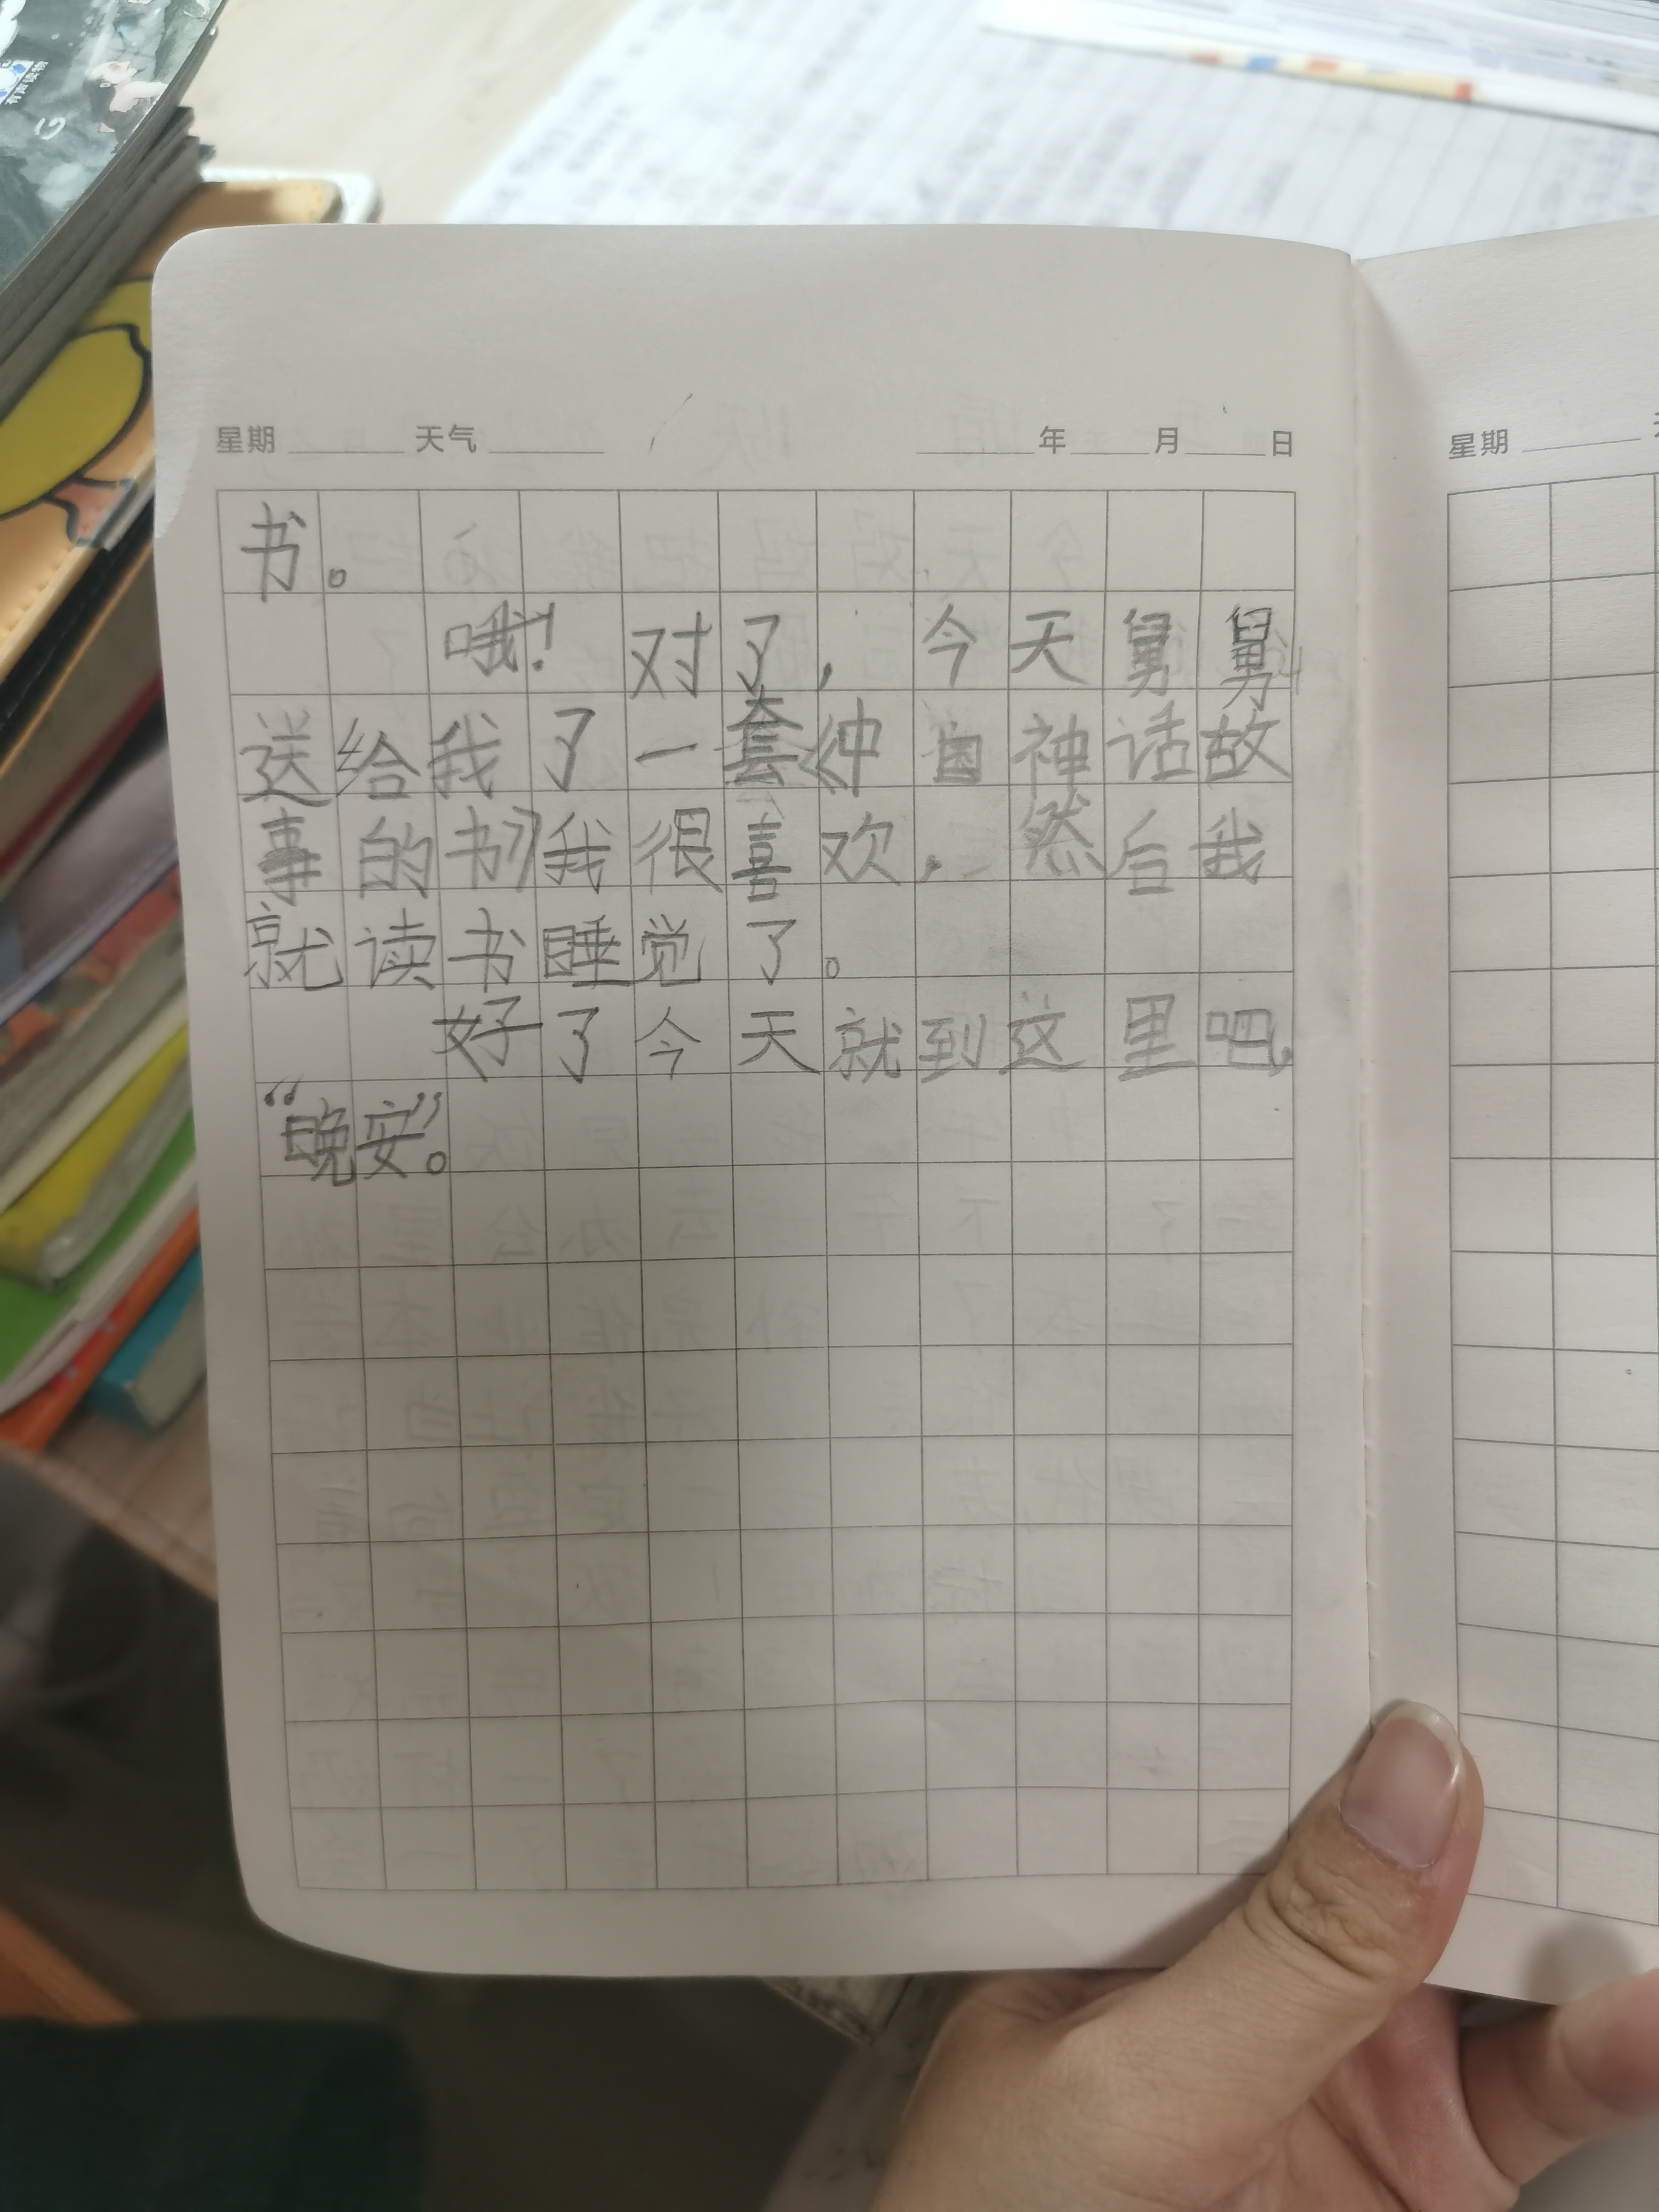 有声读物
星期 天气 年 月 日
星期
书。
哦!对了,今天舅舅
送给我了一套《中国神话故
事的书》我很喜欢,然后我
就读书睡觉了。
好了今天就到这里吧,
“晚安”。